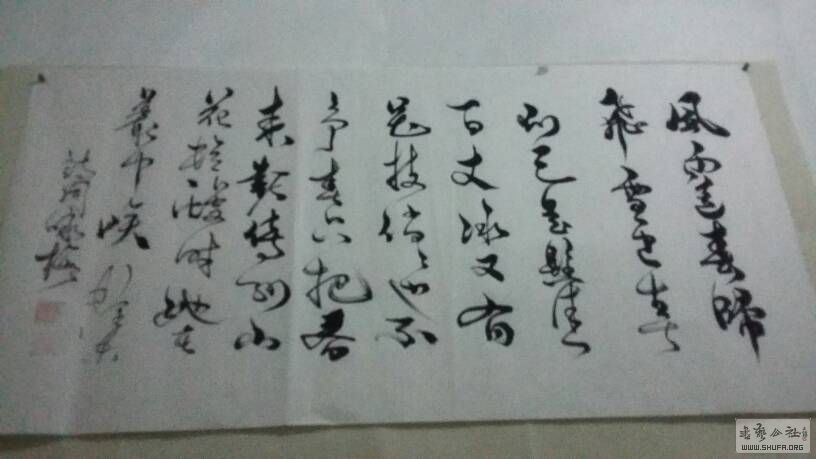 風雨送春歸
飛雪迎春
到已是懸崖
百丈冰又有
花枝俏俏也不
爭春只把春
來報待到山
花爛漫時她在
叢中笑
詠梅
書藝公社
WWW.SHUFA.ORG